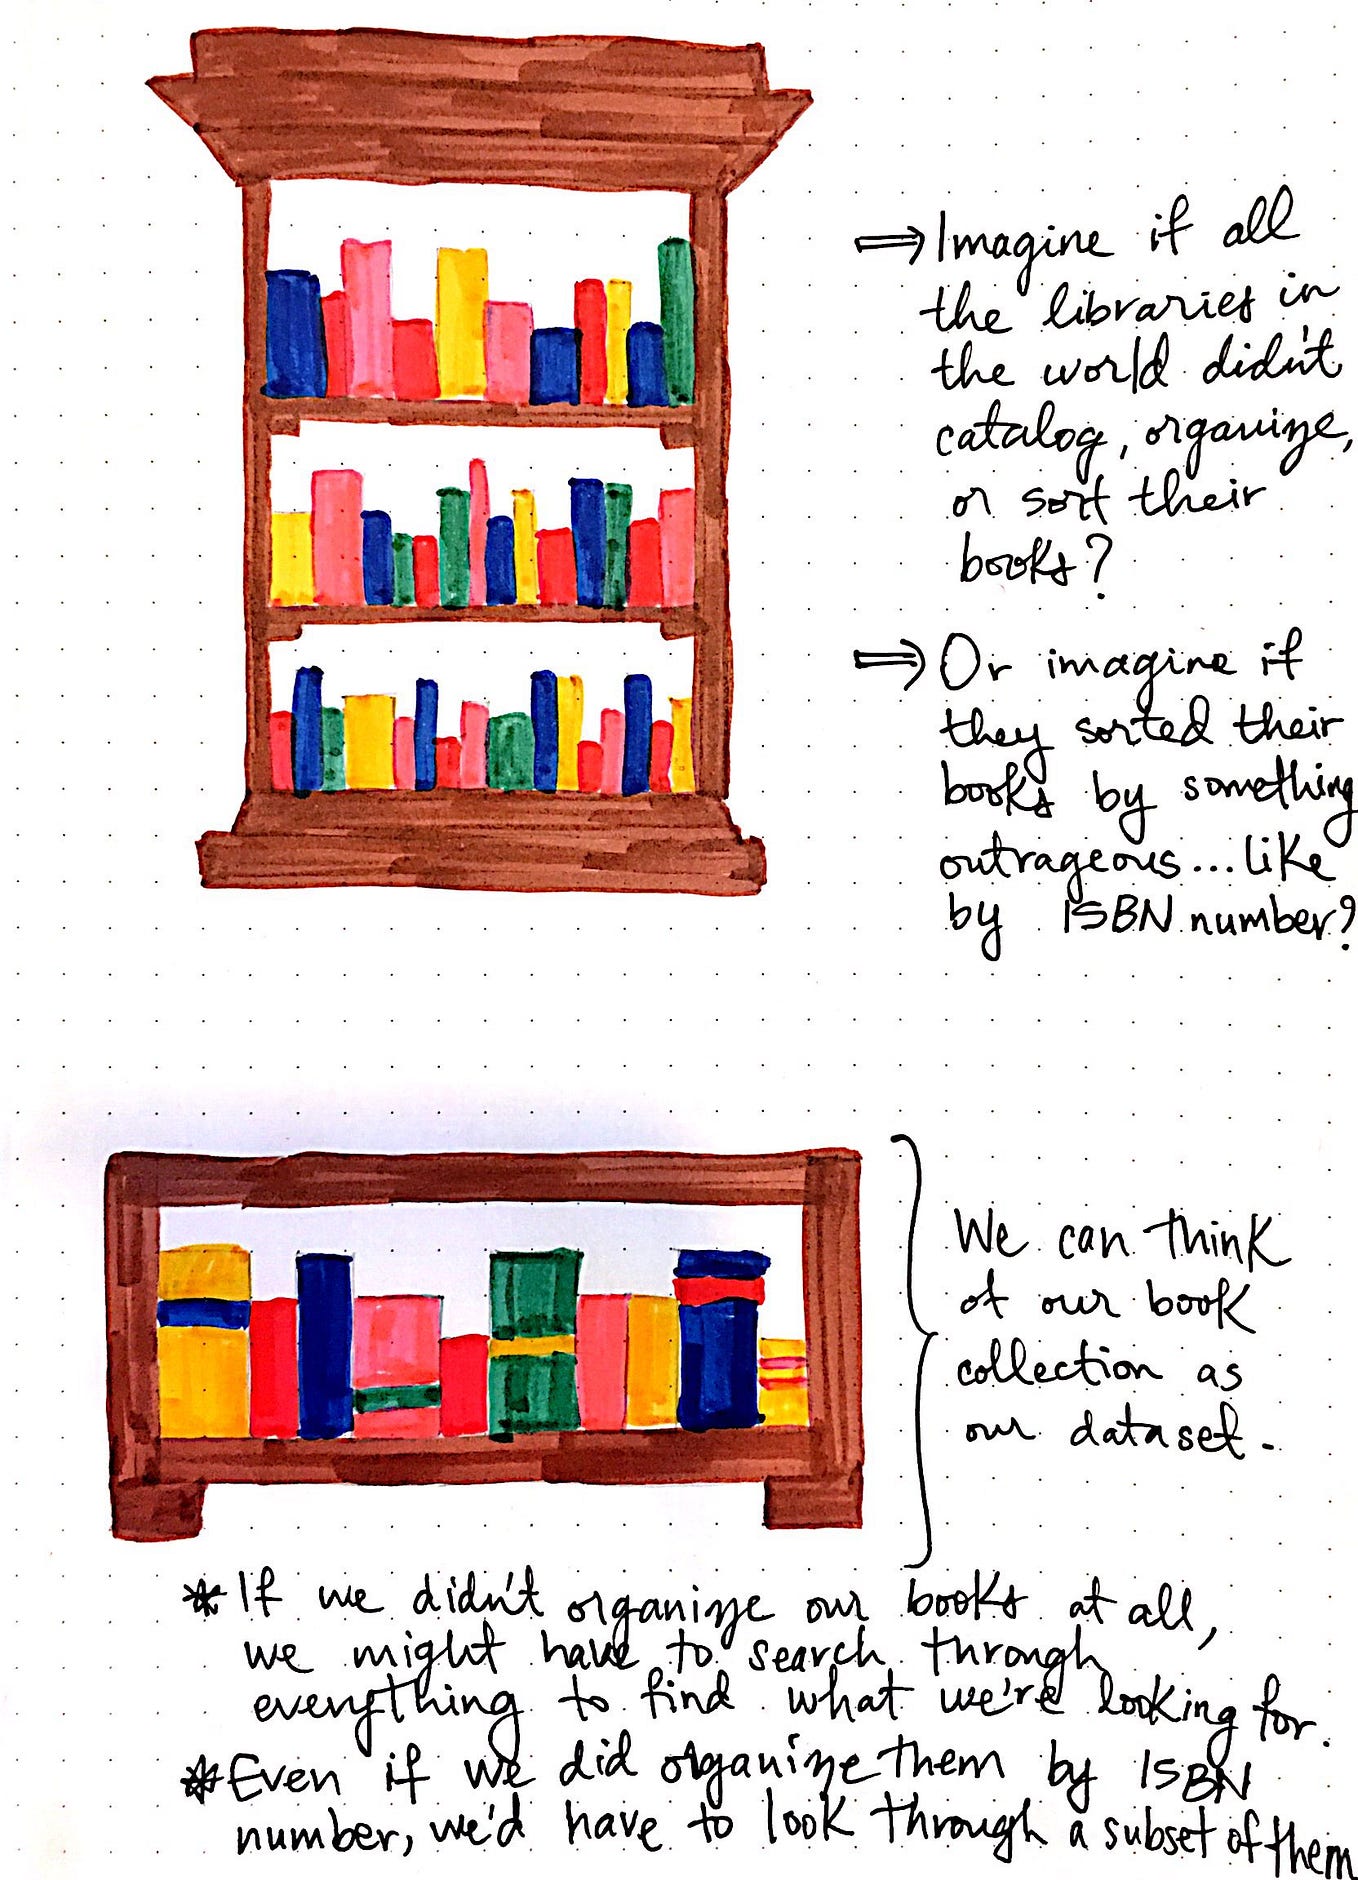 ⇒ Imagine if all
the libraries in
the world didn't
catalog, organize,
or sort their
books?
⇒ Or imagine if
they sorted their
books by something
outrageous... like
by ISBN number?
We can think
of our book
collection as
our dataset.
* If we didn't organize our books at all,
we might have to search through
everything to find what we're looking for.
* Even if we did organize them by ISBN
number, we'd have to look through a subset of them